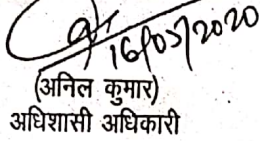 16/05/2020
(अनिल कुमार)
अधिशासी अधिकारी